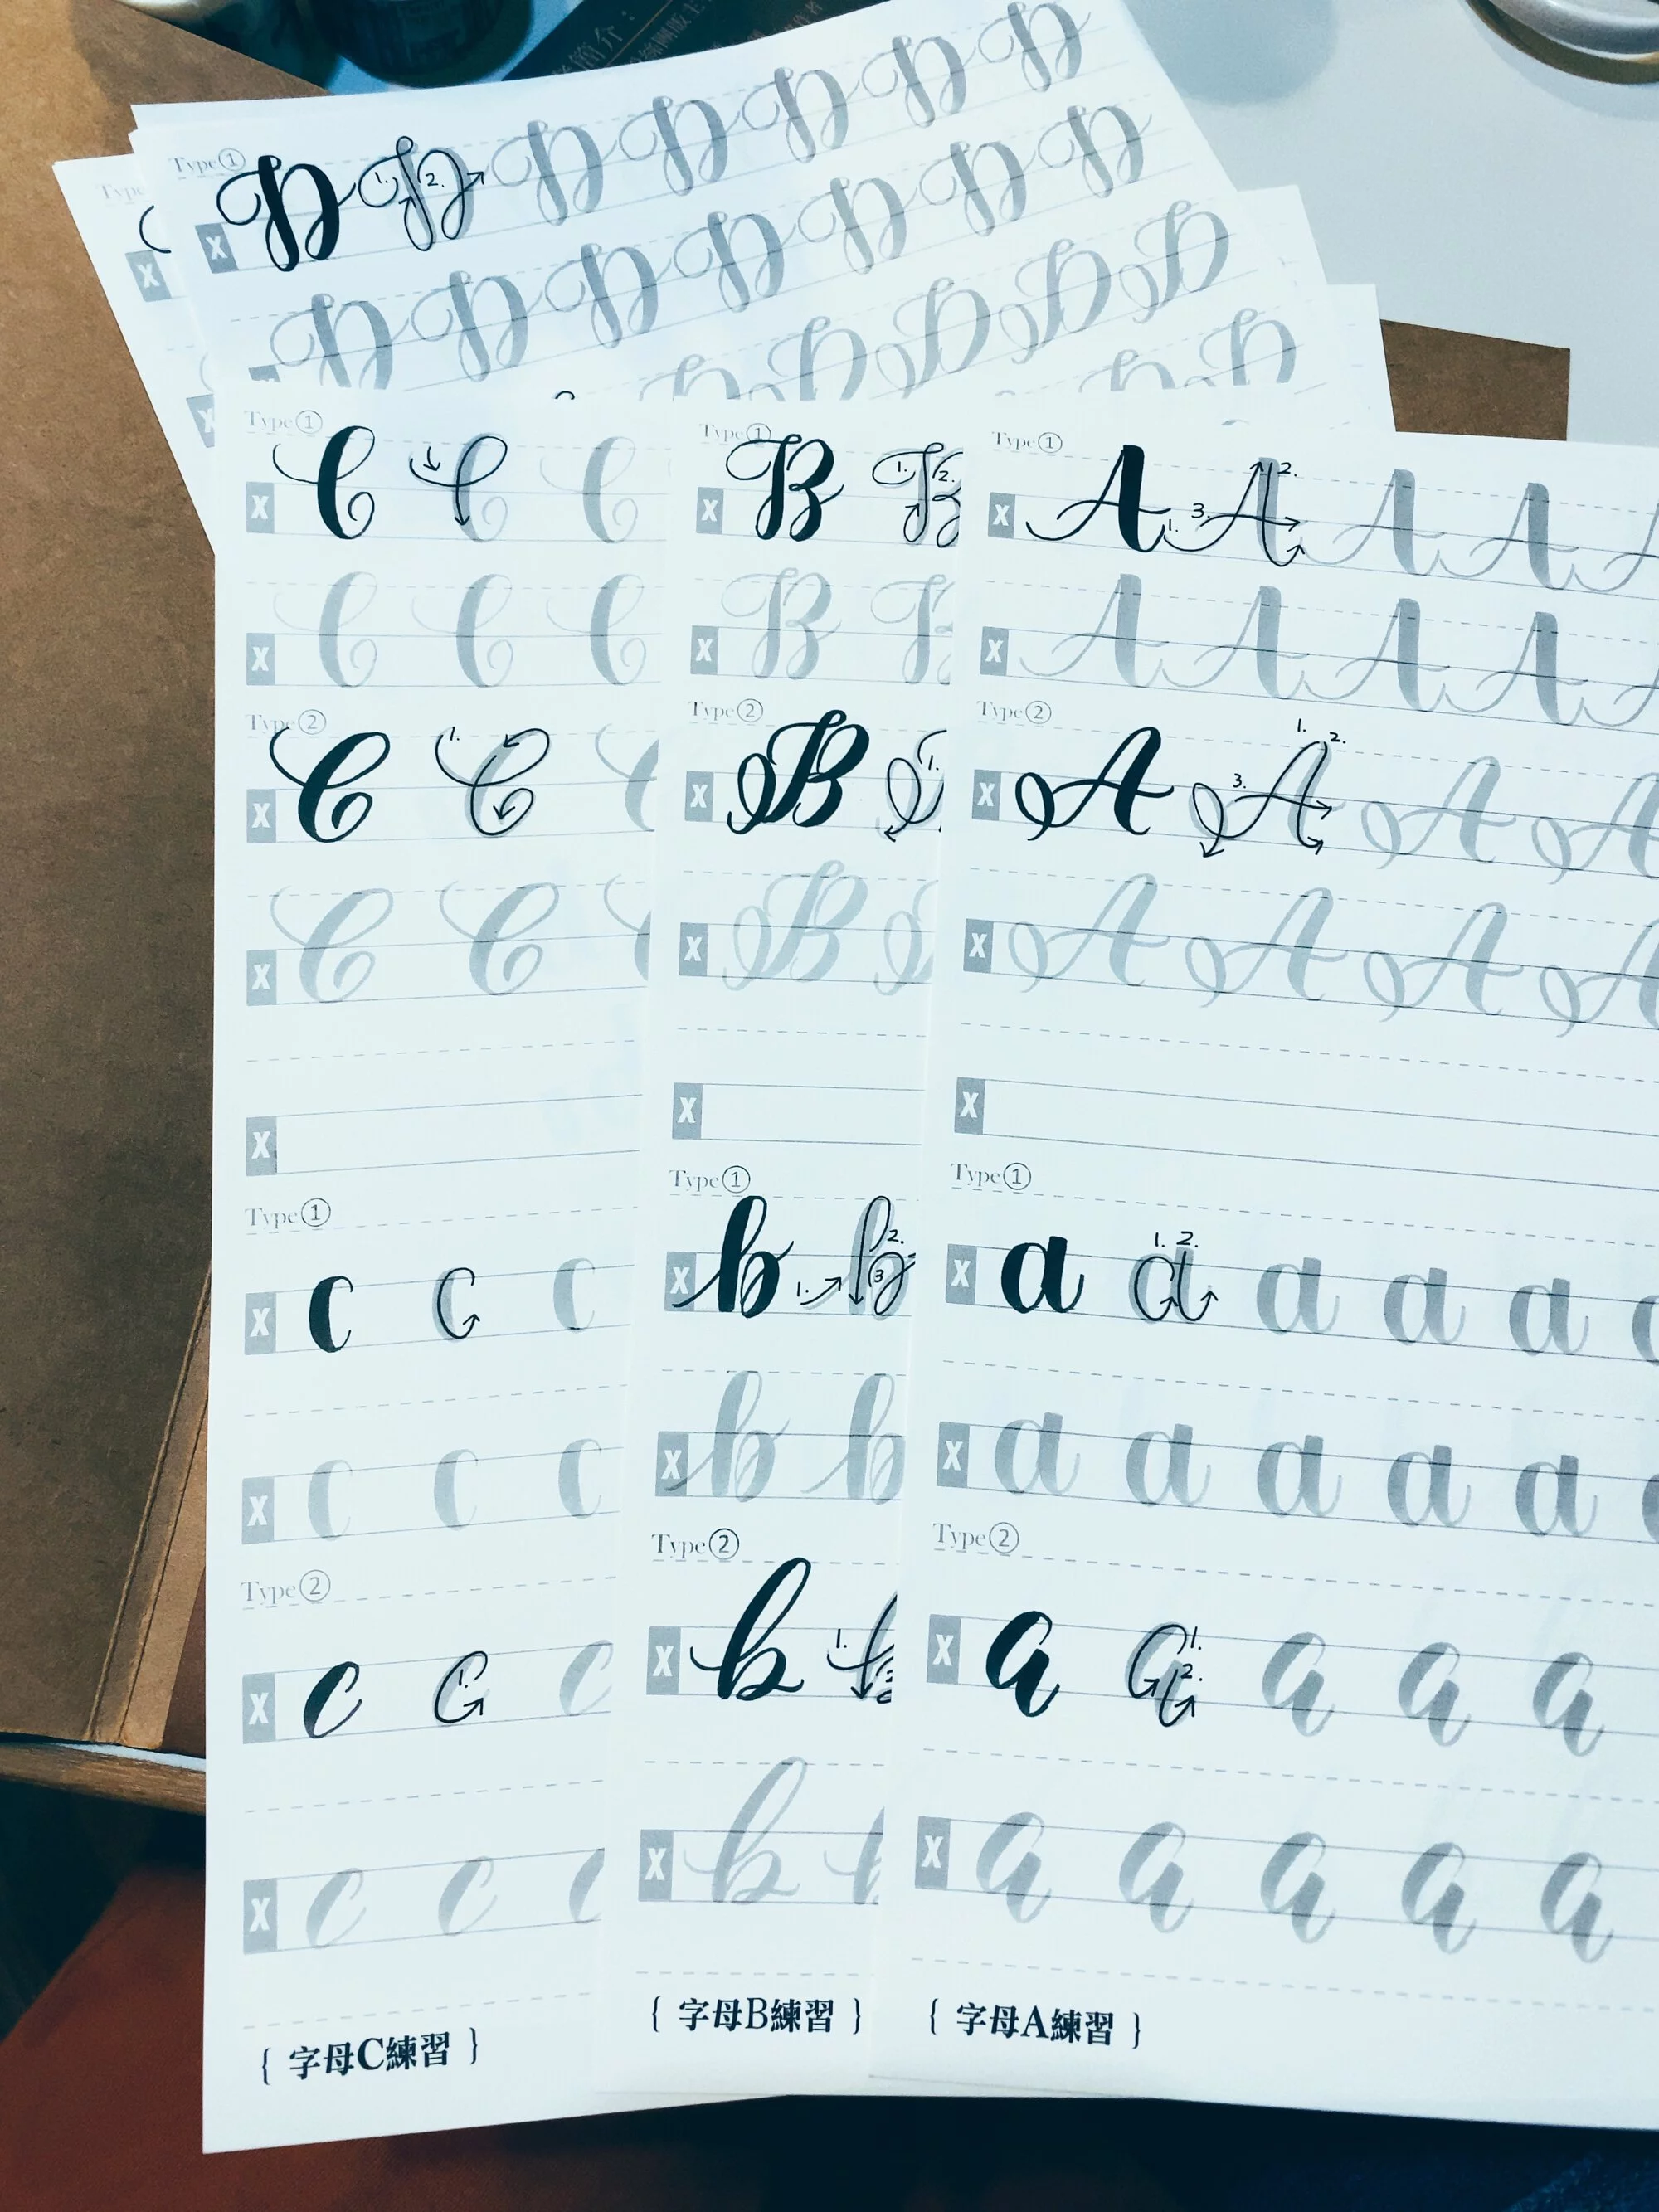 簡介：
Type①
X D 1. 2. D D D D D D
D D D D D D D
D D D D
D D
X
X
Type①
X C C C
X C C C
Type②
X C 1. C
X C C
X
Type①
X c c c
X c c c
Type②
X c 1. c c
X c c c
{ 字母C練習 }
Type①
X B 1. 2. B
X B
Type②
X B 1.
X B
X
Type①
X b 1. 2. 3 b
X b b
Type②
X b 1.
X b
{ 字母B練習 }
Type①
X A 1. 2. 3. A A A
X A A A A
Type②
X A 1. 2. 3. A A A
X A A A A
X
Type①
X a 1. 2. a a a a
X a a a a a
Type②
X a 1. 2. a a a a
X a a a a a
{ 字母A練習 }